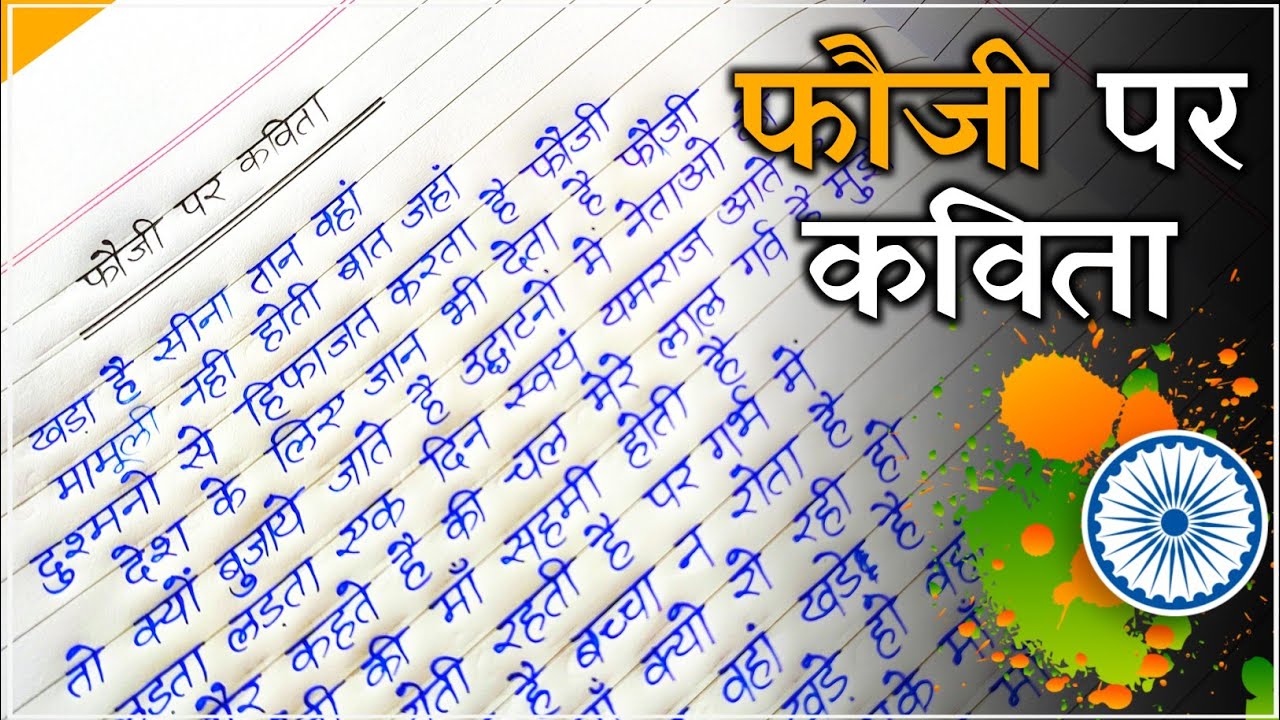 फौजी पर
कविता
फौजी पर कविता
खड़ा है सीना तान वहां
मामूली नही होती बात जहां
दुश्मनो से हिफाजत करता है फौजी
देश के लिए जान भी देता है फौजी
तो क्यों बुजाये जाते है उद्घाटनो मे नेताओ
लड़ता एक दिन स्वयं यमराज आते
कहते है की चल मेरे लाल गर्व है
की माँ सहमी होती है
रहती है पर गर्भ मे
है बच्चा न रोता है
क्यो रो रही हो
वहां खड़े है
खड़े हो
के माँ